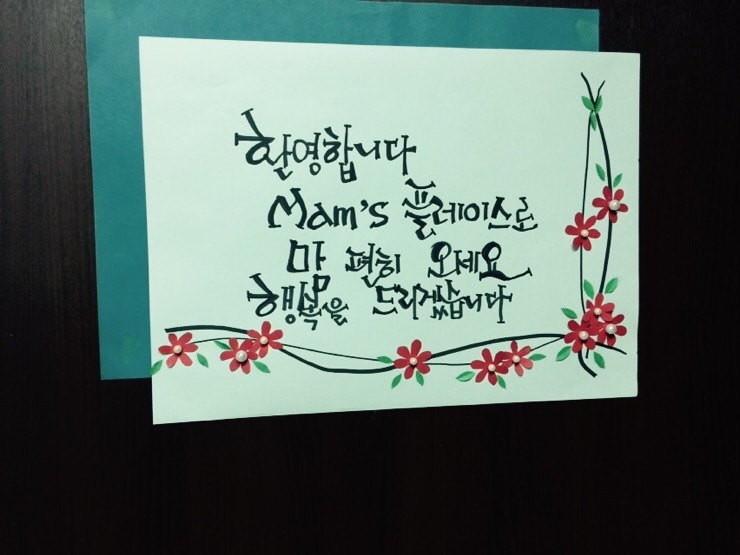 환영합니다
Mam's 플레이스로
맘 편히 오세요
행복을 드리겠습니다